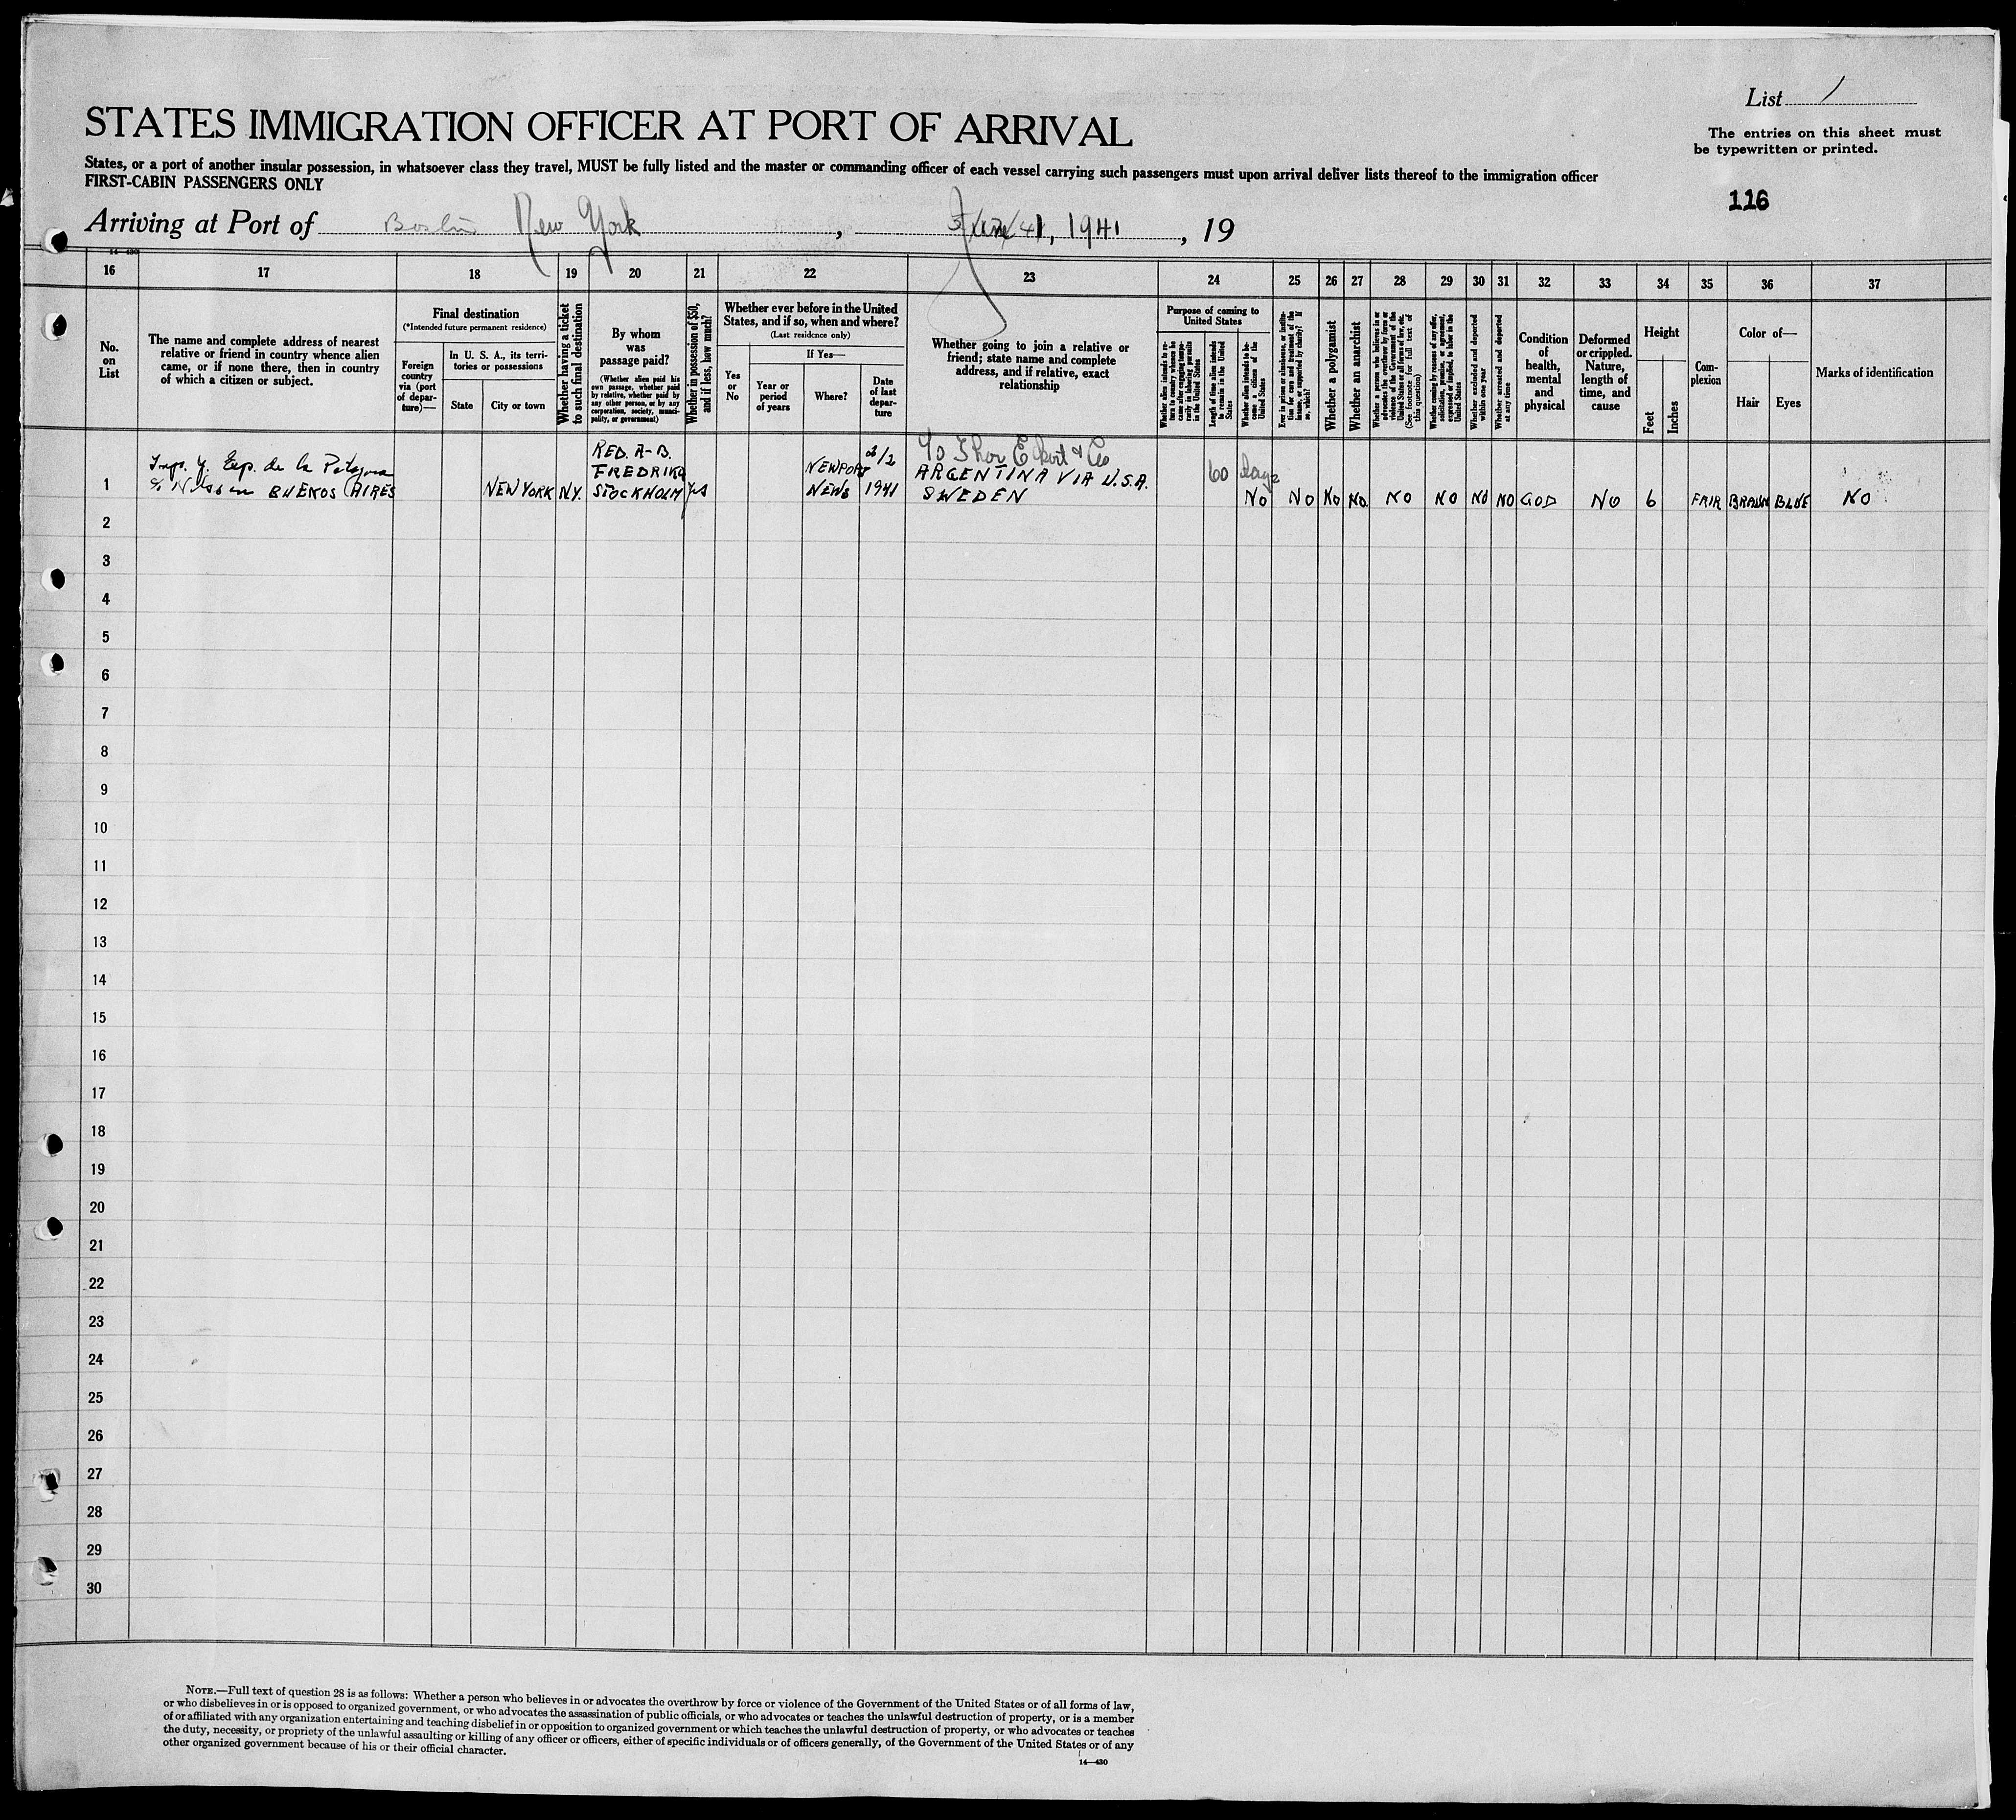 List 1
STATES IMMIGRATION OFFICER AT PORT OF ARRIVAL
The entries on this sheet must
be typewritten or printed.
States, or a port of another insular possession, in whatsoever class they travel, MUST be fully listed and the master or commanding officer of each vessel carrying such passengers must upon arrival deliver lists thereof to the immigration officer
FIRST-CABIN PASSENGERS ONLY
116
Arriving at Port of Boston New York, 1941, 19
14—430
16 17 18 19 20 21 22 23 24 25 26 27 28 29 30 31 32 33 34 35 36 37
No.
on
List
The name and complete address of nearest
relative or friend in country whence alien
came, or if none there, then in country
of which a citizen or subject.
Final destination
(*Intended future permanent residence)
Foreign
country
via (port
of depar-
ture)—
In U. S. A., its terri-
tories or possessions
State
City or town
Whether having a ticket
to such final destination
By whom
was
passage paid?
(Whether alien paid his
own passage, whether paid
by relative, whether paid by
any other person, or by any
corporation, society, munici-
pality, or government)
Whether in possession of $50,
and if less, how much?
Whether ever before in the United
States, and if so, when and where?
(Last residence only)
Yes
or
No
If Yes—
Year or
period
of years
Where?
Date
of last
depar-
ture
Whether going to join a relative or
friend; state name and complete
address, and if relative, exact
relationship
Purpose of coming to
United States
Whether alien intends to re-
turn to country whence he
came after engaging tempo-
rarily in laboring pursuits
in the United States
Length of time alien intends
to remain in the United
States
Whether alien intends to be-
come a citizen of the
United States
Ever in prison or almshouse, or institu-
tion for care and treatment of the
insane, or supported by charity? If
so, which?
Whether a polygamist
Whether an anarchist
Whether a person who believes in or
advocates the overthrow by force or
violence of the Government of the
United States or all forms of law, etc.
(See footnote for full text of
this question)
Whether coming by reason of any offer,
solicitation, promise, or agreement,
expressed or implied, to labor in the
United States
Whether excluded and deported
within one year
Whether arrested and deported
at any time
Condition
of
health,
mental
and
physical
Deformed
or crippled.
Nature,
length of
time, and
cause
Height
Feet
Inches
Com-
plexion
Color of—
Hair
Eyes
Marks of identification
1
Imp. y. Exp. de la Patagonia
c/o BUENOS AIRES
NEW YORK
N.Y.
RED. A-B.
FREDRIKA
STOCKHOLM
Yes
NEWPORT
NEWS
2/2
1941
c/o Thor Eckert & Co
ARGENTINA VIA U.S.A.
SWEDEN
60 days
NO NO NO NO NO NO NO NO GOD NO 6 FAIR BRAUN BLUE NO
2
3
4
5
6
7
8
9
10
11
12
13
14
15
16
17
18
19
20
21
22
23
24
25
26
27
28
29
30
NOTE.—Full text of question 28 is as follows: Whether a person who believes in or advocates the overthrow by force or violence of the Government of the United States or of all forms of law,
or who disbelieves in or is opposed to organized government, or who advocates the assassination of public officials, or who advocates or teaches the unlawful destruction of property, or is a member
of or affiliated with any organization entertaining and teaching disbelief in or opposition to organized government or which teaches the unlawful destruction of property, or who advocates or teaches
the duty, necessity, or propriety of the unlawful assaulting or killing of any officer or officers, either of specific individuals or of officers generally, of the Government of the United States or of any
other organized government because of his or their official character.
14—430